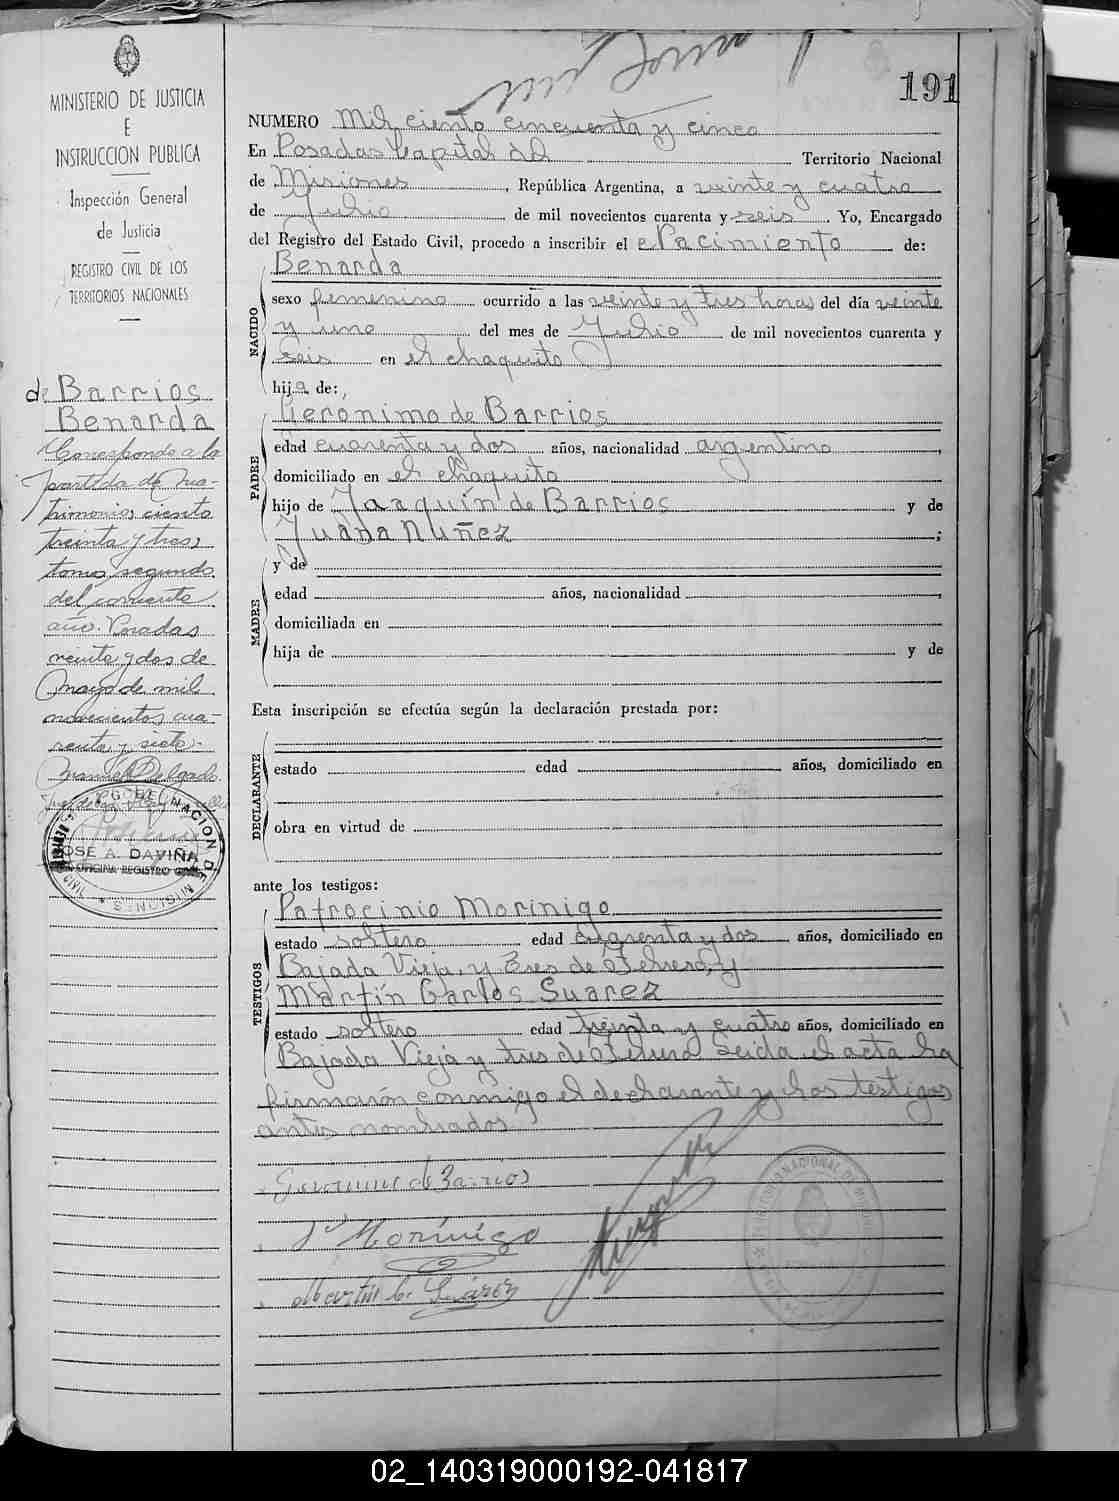 191
MINISTERIO DE JUSTICIA
E
INSTRUCCION PUBLICA
Inspección General
de Justicia
REGISTRO CIVIL DE LOS
TERRITORIOS NACIONALES
de Barrios
Benarda
Corresponde a la
partida de ma-
trimonios ciento
treinta y tres,
tomo segundo
del corriente
año. Posadas
veinte y dos de
mayo de mil
novecientos cua-
renta y siete.
Manuel Delgado
JOSE A. DAVIÑA
OFICINA REGISTRO CIVIL
NUMERO Mil ciento cincuenta y cinco
En Posadas Capital del Territorio Nacional
de Misiones, República Argentina, a veinte y cuatro
de Julio de mil novecientos cuarenta y seis. Yo, Encargado
del Registro del Estado Civil, procedo a inscribir el Nacimiento de:
Benarda
NACIDO
sexo femenino ocurrido a las veinte y tres horas del día veinte
y uno del mes de Julio de mil novecientos cuarenta y
seis en el chaquito
hija de:
Geronimo de Barrios
PADRE
edad cuarenta y dos años, nacionalidad argentino,
domiciliado en el chaquito
hijo de Joaquín de Barrios y de
Juana Nuñez;
y de
MADRE
edad años, nacionalidad,
domiciliada en
hija de y de
Esta inscripción se efectúa según la declaración prestada por:
DECLARANTE
estado edad años, domiciliado en
obra en virtud de
ante los testigos:
Patrocinio Morinigo
TESTIGOS
estado soltero edad cuarenta y dos años, domiciliado en
Bajada Vieja, y Tres de Febrero, y
Martín Carlos Suarez
estado soltero edad treinta y cuatro años, domiciliado en
Bajada Vieja y tres de Febrero Leida el acta la
firmarón conmigo el declarante y los testigos
antes nombrados.
Geronimo de Barrios
P Morinigo
Martin C. Suárez
02_140319000192-041817